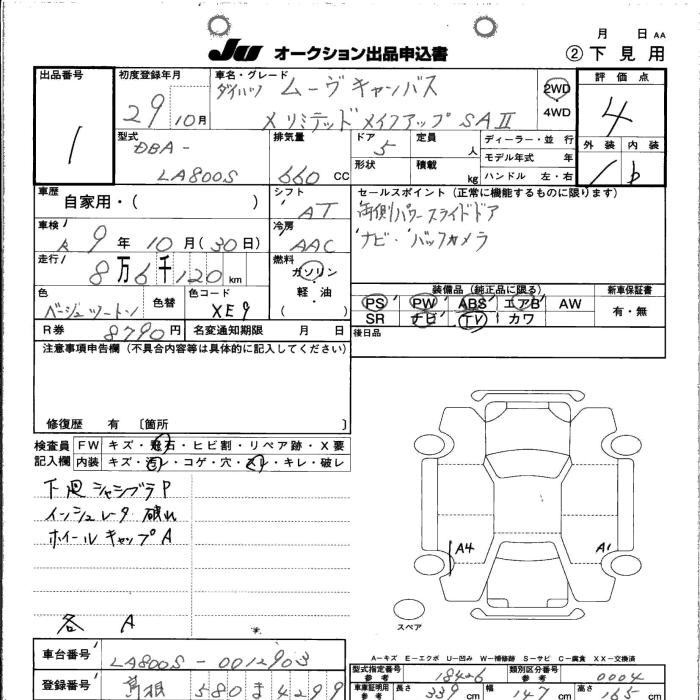 月 日 AA
JU オークション出品申込書 ② 下見用
出品番号 1
初度登録年月 29年10月
車名・グレード ダイハツ ムーヴキャンバス
X リミテッド メイクアップ SAⅡ
2WD
4WD
評価点 4
外装 内装
型式 DBA-
LA800S
排気量 660 CC
ドア 5
形状
定員 人
積載 kg
ディーラー・並行
モデル年式 年
ハンドル 左・右
車歴 自家用・( )
シフト AT
セールスポイント (正常に機能するものに限ります)
両側パワースライドドア
ナビ・バックカメラ
車検 R 9年10月(30日)
冷房 AAC
走行 8万6千120km
燃料 ガソリン
軽・油
( )
色 ベージュツートン
色替
色コード XE9
装備品 (純正品に限る)
PS PW ABS エアB AW
SR ナビ TV カワ
新車保証書
有・無
R券 8790円 名変通知期限 月 日
後日品
注意事項申告欄 (不具合内容等は具体的に記入してください)
修復歴 有 〔箇所 〕
検査員 記入欄
FW キズ・飛石・ヒビ割・リペア跡・X要
内装 キズ・汚レ・コゲ・穴・スレ・キレ・破レ
下廻シャシブラP
インシュレータ破れ
ホイールキャップA
各 A
A4 A1
スペア
A-キズ E-エクボ U-凹み W-補修跡 S-サビ C-腐食 XX-交換済
車台番号 LA800S-0012903
登録番号 島根 580 ま 4299
型式指定番号 参考 18426
類別区分番号 参考 0004
車車証明用 参考 長さ 339cm 幅 147cm 高さ 165cm